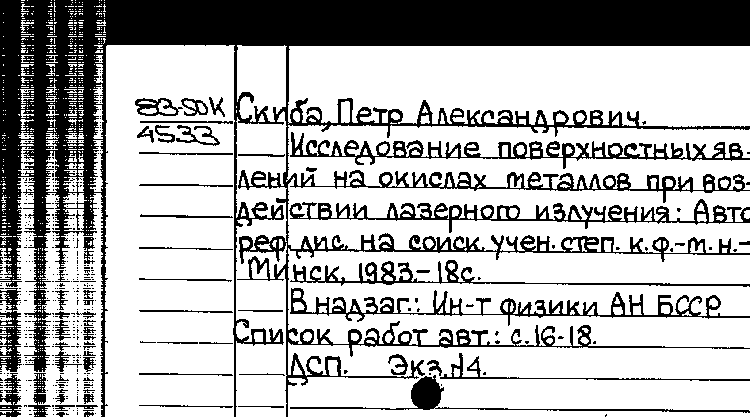 83-50К Скиба, Петр Александрович.
4533
Исследование поверхностных яв-
лений на окислах металлов при воз-
действии лазерного излучения: Авто
реф. дис. на соиск. учен. степ. к.ф.-м.н.-
Минск, 1983.-18с.
В надзаг.: Ин-т физики АН БССР.
Список работ авт.: с.16-18.
ДСП. Экз.N4.